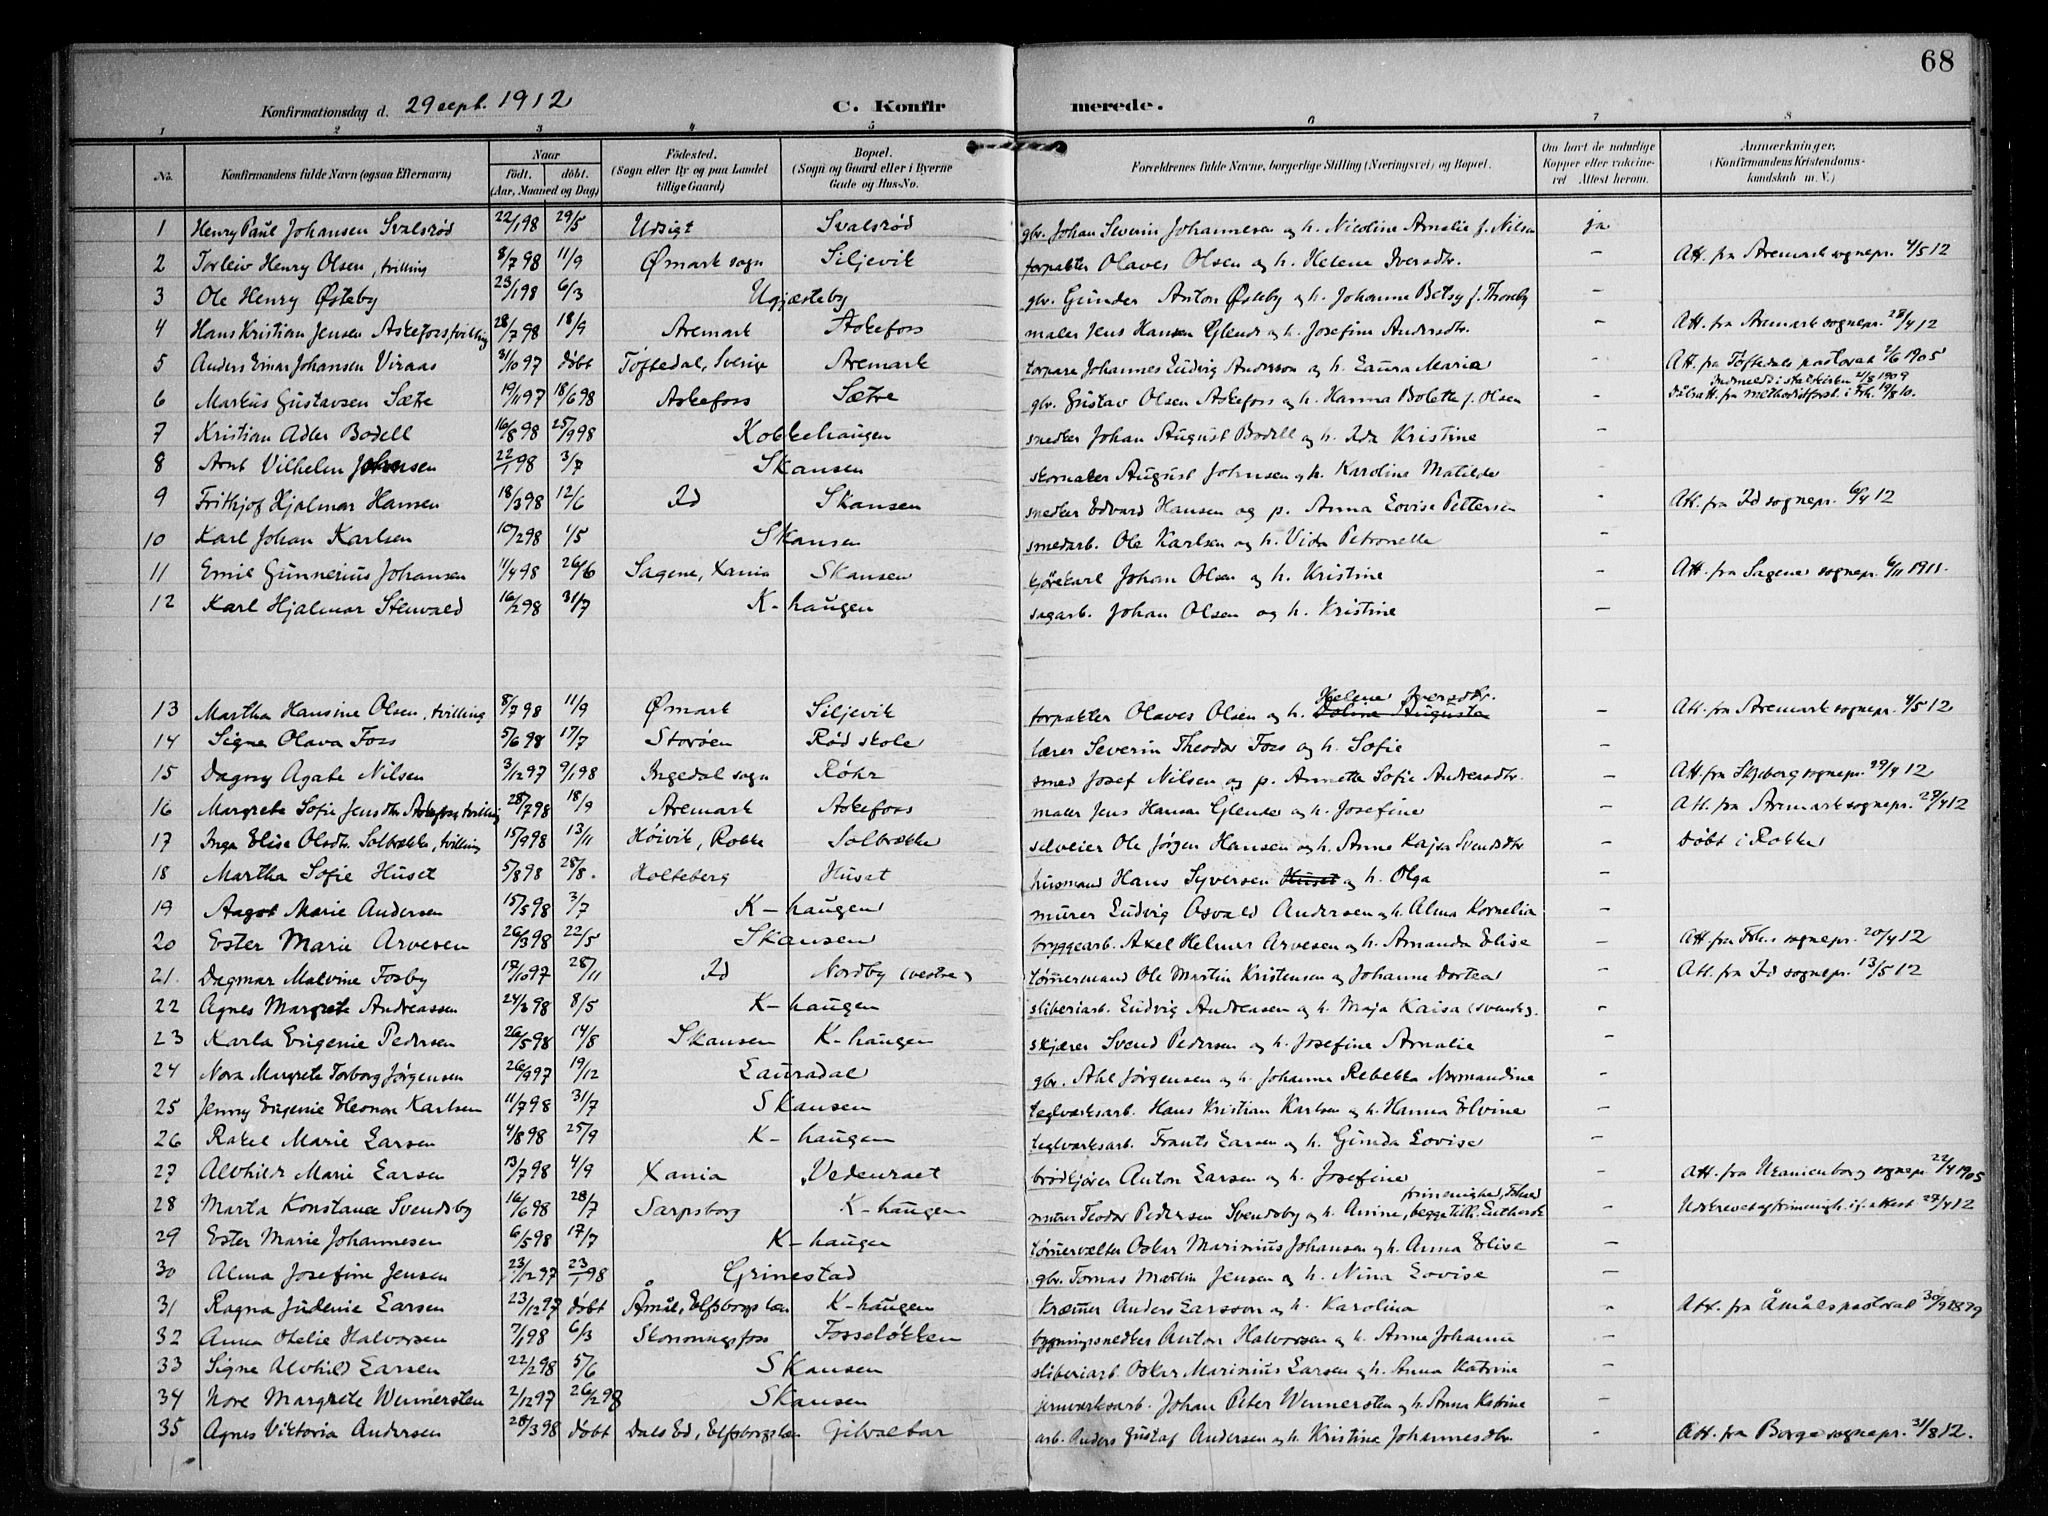 68
Konfirmationsdag d. 29 sept. 1912
C. Konfirmerede.
1 2 3 4 5 6 7 8
No. Konfirmandens fulde Navn (ogsaa Efternavn) Naar født. døbt. (Aar, Maaned og Dag) Fødested. (Sogn eller By og paa Landet tillige Gaard) Bopæl. (Sogn og Gaard eller i Byerne Gade og Hus-No. Forældrenes fulde Navne, borgerlige Stilling (Næringsvei) og Bopæl. Om havt de naturlige Kopper eller vaccineret Attest herom. Anmærkninger. (Konfirmandens Kristendomskundskab m. V.)
1 Henry Paul Johansen Svalsrød 22/1 98 29/5 Udsigt Svalsrød gbr. Johan Severin Johannesen og h. Nicoline Amalie f. Nilsen ja
2 Torleiv Henry Olsen, tvilling 8/7 98 11/9 Ømark sogn Siljevik forpakter Olaves Olsen og h. Helene Iversdtr. - Att. fra Aremark sognepr. 4/5 12
3 Ole Henry Østeby 23/1 98 6/3 Ugjæsteby gbr. Gunder Anton Østeby og h. Johanne Betsy f. Thoreby -
4 Hans Kristian Jensen Askefoss, tvilling 28/7 98 18/9 Aremark Askefoss maler Jens Hansen Glende og h. Josefine Andersdtr. - Att. fra Aremark sognepr. 28/4 12
5 Anders Einar Johansen Viraas 31/10 97 døbt Töftedal, Sverige Aremark torpare Johannes Ludvig Andersson og h. Laura Maria - Att. fra Töftedals pastorat 2/6 1905
6 Markus Gustavsen Sætre 19/11 97 18/6 98 Askefoss Sætre gbr. Gustav Olsen Askefoss og h. Hanna Bolette f. Olsen - Indmeldt i statskirken 2/8 1909 Dåbsatt. fra methodistforst. i Frh. 19/8 10.
7 Kristian Adler Bodell 16/8 98 25/9 98 Kokkehaugen snedker Johan August Bodell og h. Ida Kristine -
8 Arnt Vilhelm Johnsen 22/1 98 3/7 Skansen skomaker August Johnsen og h. Karoline Matilde -
9 Frithjof Hjalmar Hansen 18/3 98 12/6 Id Skansen snedker Edvard Hansen og p. Anna Lovise Pettersen - Att. fra Id sognepr. 6/4 12
10 Karl Johan Karlsen 10/2 98 1/5 Skansen smedarb. Ole Karlsen og h. Vida Petronelle -
11 Emil Gunnerius Johansen 11/4 98 26/6 Sagene, Xania Skansen kjørekarl Johan Olsen og h. Kristine - Att. fra Sagene sognepr. 6/11 1911.
12 Karl Hjalmar Stenvald 16/2 98 31/7 K-haugen sagarb. Johan Olsen og h. Kristine -
13 Martha Hansine Olsen, tvilling 8/7 98 11/9 Ømark Siljevik forpakter Olaves Olsen og h. Ooline Augusta Helene Iversdtr. - Att. fra Aremark sognepr. 4/5 12
14 Signe Olava Foss 5/6 98 17/7 Storøen Rød skole lærer Severin Theodor Foss og h. Sofie -
15 Dagny Agate Nilsen 3/12 97 9/1 98 Ingedal sogn Røhr smed Josef Nilsen og p. Annette Sofie Andreasdtr. - Att. fra Skjeberg sognepr. 29/4 12
16 Margrete Sofie Jensdtr. Askefoss, tvilling 28/7 98 18/9 Aremark Askefoss maler Jens Hansen Glende og h. Josefine - Att. fra Aremark sognepr. 28/4 12
17 Inga Elise Olsdtr. Solbrække, tvilling 15/9 98 13/11 Høivik, Rokke Solbrække selveier Ole Jørgen Hansen og h. Anne Kajsa Svendsdtr - Døbt i Rokke
18 Martha Sofie Huset 5/8 98 28/8. Holteberg Huset husmand Hans Syversen Huset og h. Olga -
19 Aagot Marie Andersen 15/5 98 3/7 K-haugen murer Ludvig Osvald Andersen og h. Alma Kornelia -
20 Ester Marie Arvesen 26/3 98 22/5 Skansen bryggearb. Axel Helmer Arvesen og h. Amanda Elise - Att. fra Frh.s sognepr. 20/4 12
21. Dagmar Malvine Fosby 17/10 97 28/11 Id Nordby (vestre) tømmermand Ole Martin Kristensen og Johanne Dortea - Att. fra Id sognepr. 13/5 12
22 Agnes Margrete Andreassen 24/3 98 8/5 K-haugen sliberiarb. Ludvig Andreasen og h. Maja Kaisa (svensk). -
23 Karla Eugenie Pedersen 26/5 98 14/8 Skansen K-haugen skjærer Svend Pedersen og h. Josefine Amalie -
24 Nora Margrete Torborg Jørgensen 26/9 97 19/12 Lauradal gbr. Ahl Jørgensen og h. Johanne Rebekka Normandine -
25 Jenny Eugenie Eleonor Karlsen 11/7 98 31/7 Skansen teglværksarb. Hans Kristian Karlsen og h. Hanna Elvine -
26 Rakel Marie Larsen 4/8 98 25/9 K-haugen teglværksarb. Frants Larsen og h. Gunda Lovise -
27 Alvhild Marie Larsen 13/7 98 4/9 Xania Vedenraet brødkjører Anton Larsen og h. Josefine - Att. fra Uranienborg sognepr. 22/4 1905
28 Marta Konstance Svendsby 16/6 98 28/7 Sarpsborg K-haugen murer Teodor Pedersen Svendsby og h. Amine, begge tilh. Luthersk frimenighed, Frhed - Udskrevet af frimenigh. if. attest 27/4 12
29 Ester Marie Johannesen 6/5 98 17/7 K-haugen tømmervælter Oskar Marinius Johansen og h. Anna Elise -
30 Alma Josefine Jensen 23/12 97 23/1 98 Grinestad gbr. Tomas Martin Jensen og h. Nina Lovise -
31 Ragna Judenie Larsen 23/12 97 døbt Åmål, Elfsborgs læn K-haugen kræmmer Anders Larsson og h. Karolina - Att. fra Åmåls pastorat 30/9 1879
32 Anna Otelie Halvorsen 7/1 98 6/3 Skonningsfoss Fosseløkken bygningssnedker Anton Halvorsen og h. Anne Johanne -
33 Signe Alvhild Larsen 22/2 98 5/6 Skansen sliberiarb. Oskar Marinius Larsen og h. Anna Katrine -
34 Nore Margrete Wennersten 2/12 97 26/2 98 Skansen jernværksarb. Johan Peter Wennersten og h. Anna Katrine -
35 Agnes Viktoria Andersen 28/3 98 døbt Dals Ed, Elfsborgs læn Gibraltar arb. Anders Gustaf Andersen og h. Kristine Johannesdtr. - Att. fra Borge sognepr. 31/8 12.